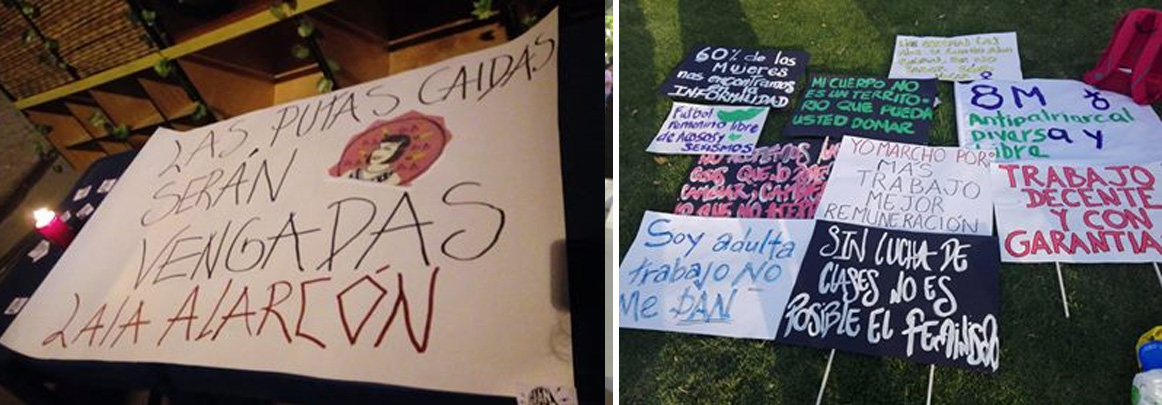 LAS PUTAS CAIDAS
SERÁN
VENGADAS
LAIA ALARCÓN
60% de las
Mujeres
nos encontramos
en la
INFORMALIDAD
MI CUERPO NO
ES UN TERRITO-
RIO QUE PUEDA
USTED DOMAR
8M
Antipatriarcal
Diversa y
Libre
Futbol
Femenino libre
de Acoso y
SEXISMOS
YO MARCHO POR:
MÁS
TRABAJO
MEJOR
REMUNERACIÓN
TRABAJO
DECENTE
Y CON
GARANTIA
Soy adulta
trabajo NO
Me DAN
SIN LUCHA DE
CLASES NO ES
POSIBLE EL FEMINISMO